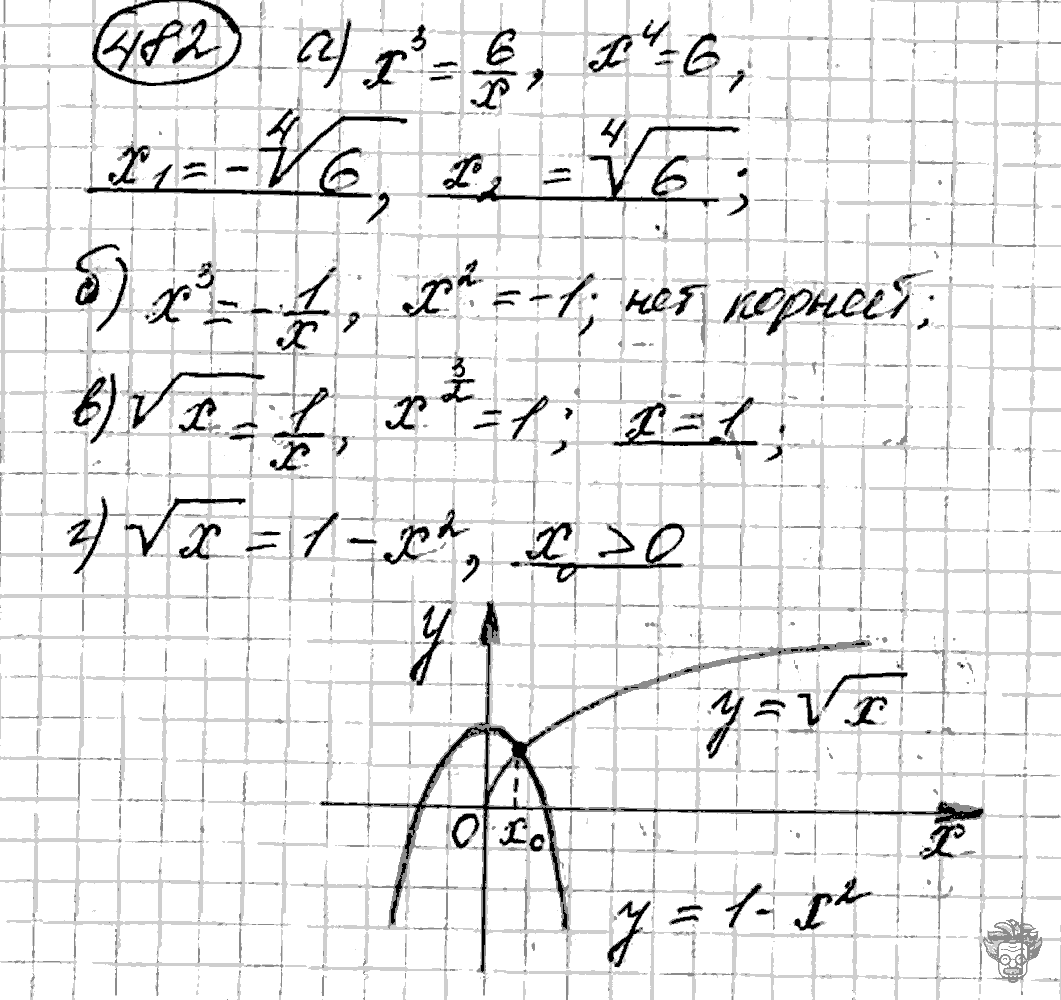 482 а) x³ = 6/x, x⁴ = 6,
x₁ = -⁴√6, x₂ = ⁴√6;
б) x³ = -1/x, x² = -1; нет корней;
в) √x = 1/x, x^(3/2) = 1; x = 1;
г) √x = 1 - x², x₀ > 0
y
y = √x
0 x₀ x
y = 1 - x²